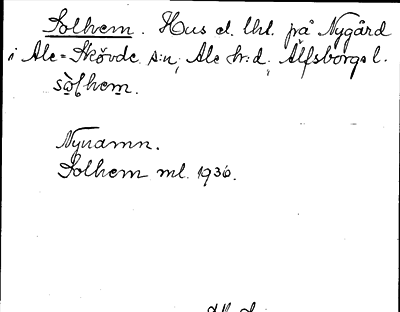 Solhem. Hus el. lht. på Nygård
i Ale-Skövde s:n, Ale h:d, Älfsborgs l.
sòlhem.
Nynamn.
Solhem ml. 1936.